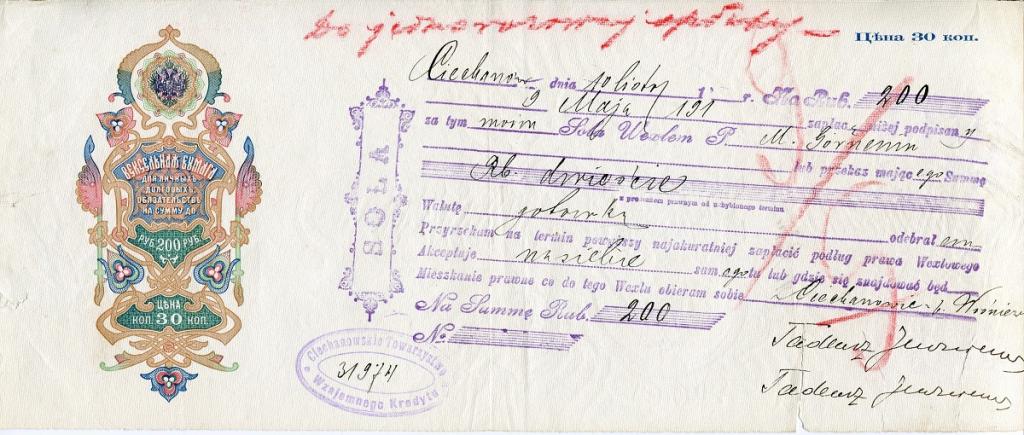 Do jednorazowej
Цѣна 30 коп.
ВЕКСЕЛЬНАЯ БУМАГА
ДЛЯ ЛИЧНЫХЪ
ДОЛГОВЫХЪ
ОБЯЗАТЕЛЬСТВЪ
НА СУММУ ДО
РУБ. 200 РУБ.
ЦѢНА
КОП. 30 КОП.
SOLA
Ciechanów dnia 10 191 r. Na Rub. 200
9 Maja zapłac niżej podpisany
za tym moim Sola Wexlem P. M.
lub przekaz mając ego Summę
Rb. dwieście
z protestem prawnym od uchybionego terminu
Walutę gotówką odebrał em
Przyrzekam na termin powyższy najakuratniej zapłacić podług prawa Wexlowego
Akceptuję na siebie sam ego tu lub gdzie się znajdować będ
Mieszkanie prawne co do tego Wexlu obieram sobie
Na Summę Rub. 200
№
Ciechanowskie Towarzystwo
31974
Wzajemnego Kredytu
Tadeusz
Tadeusz